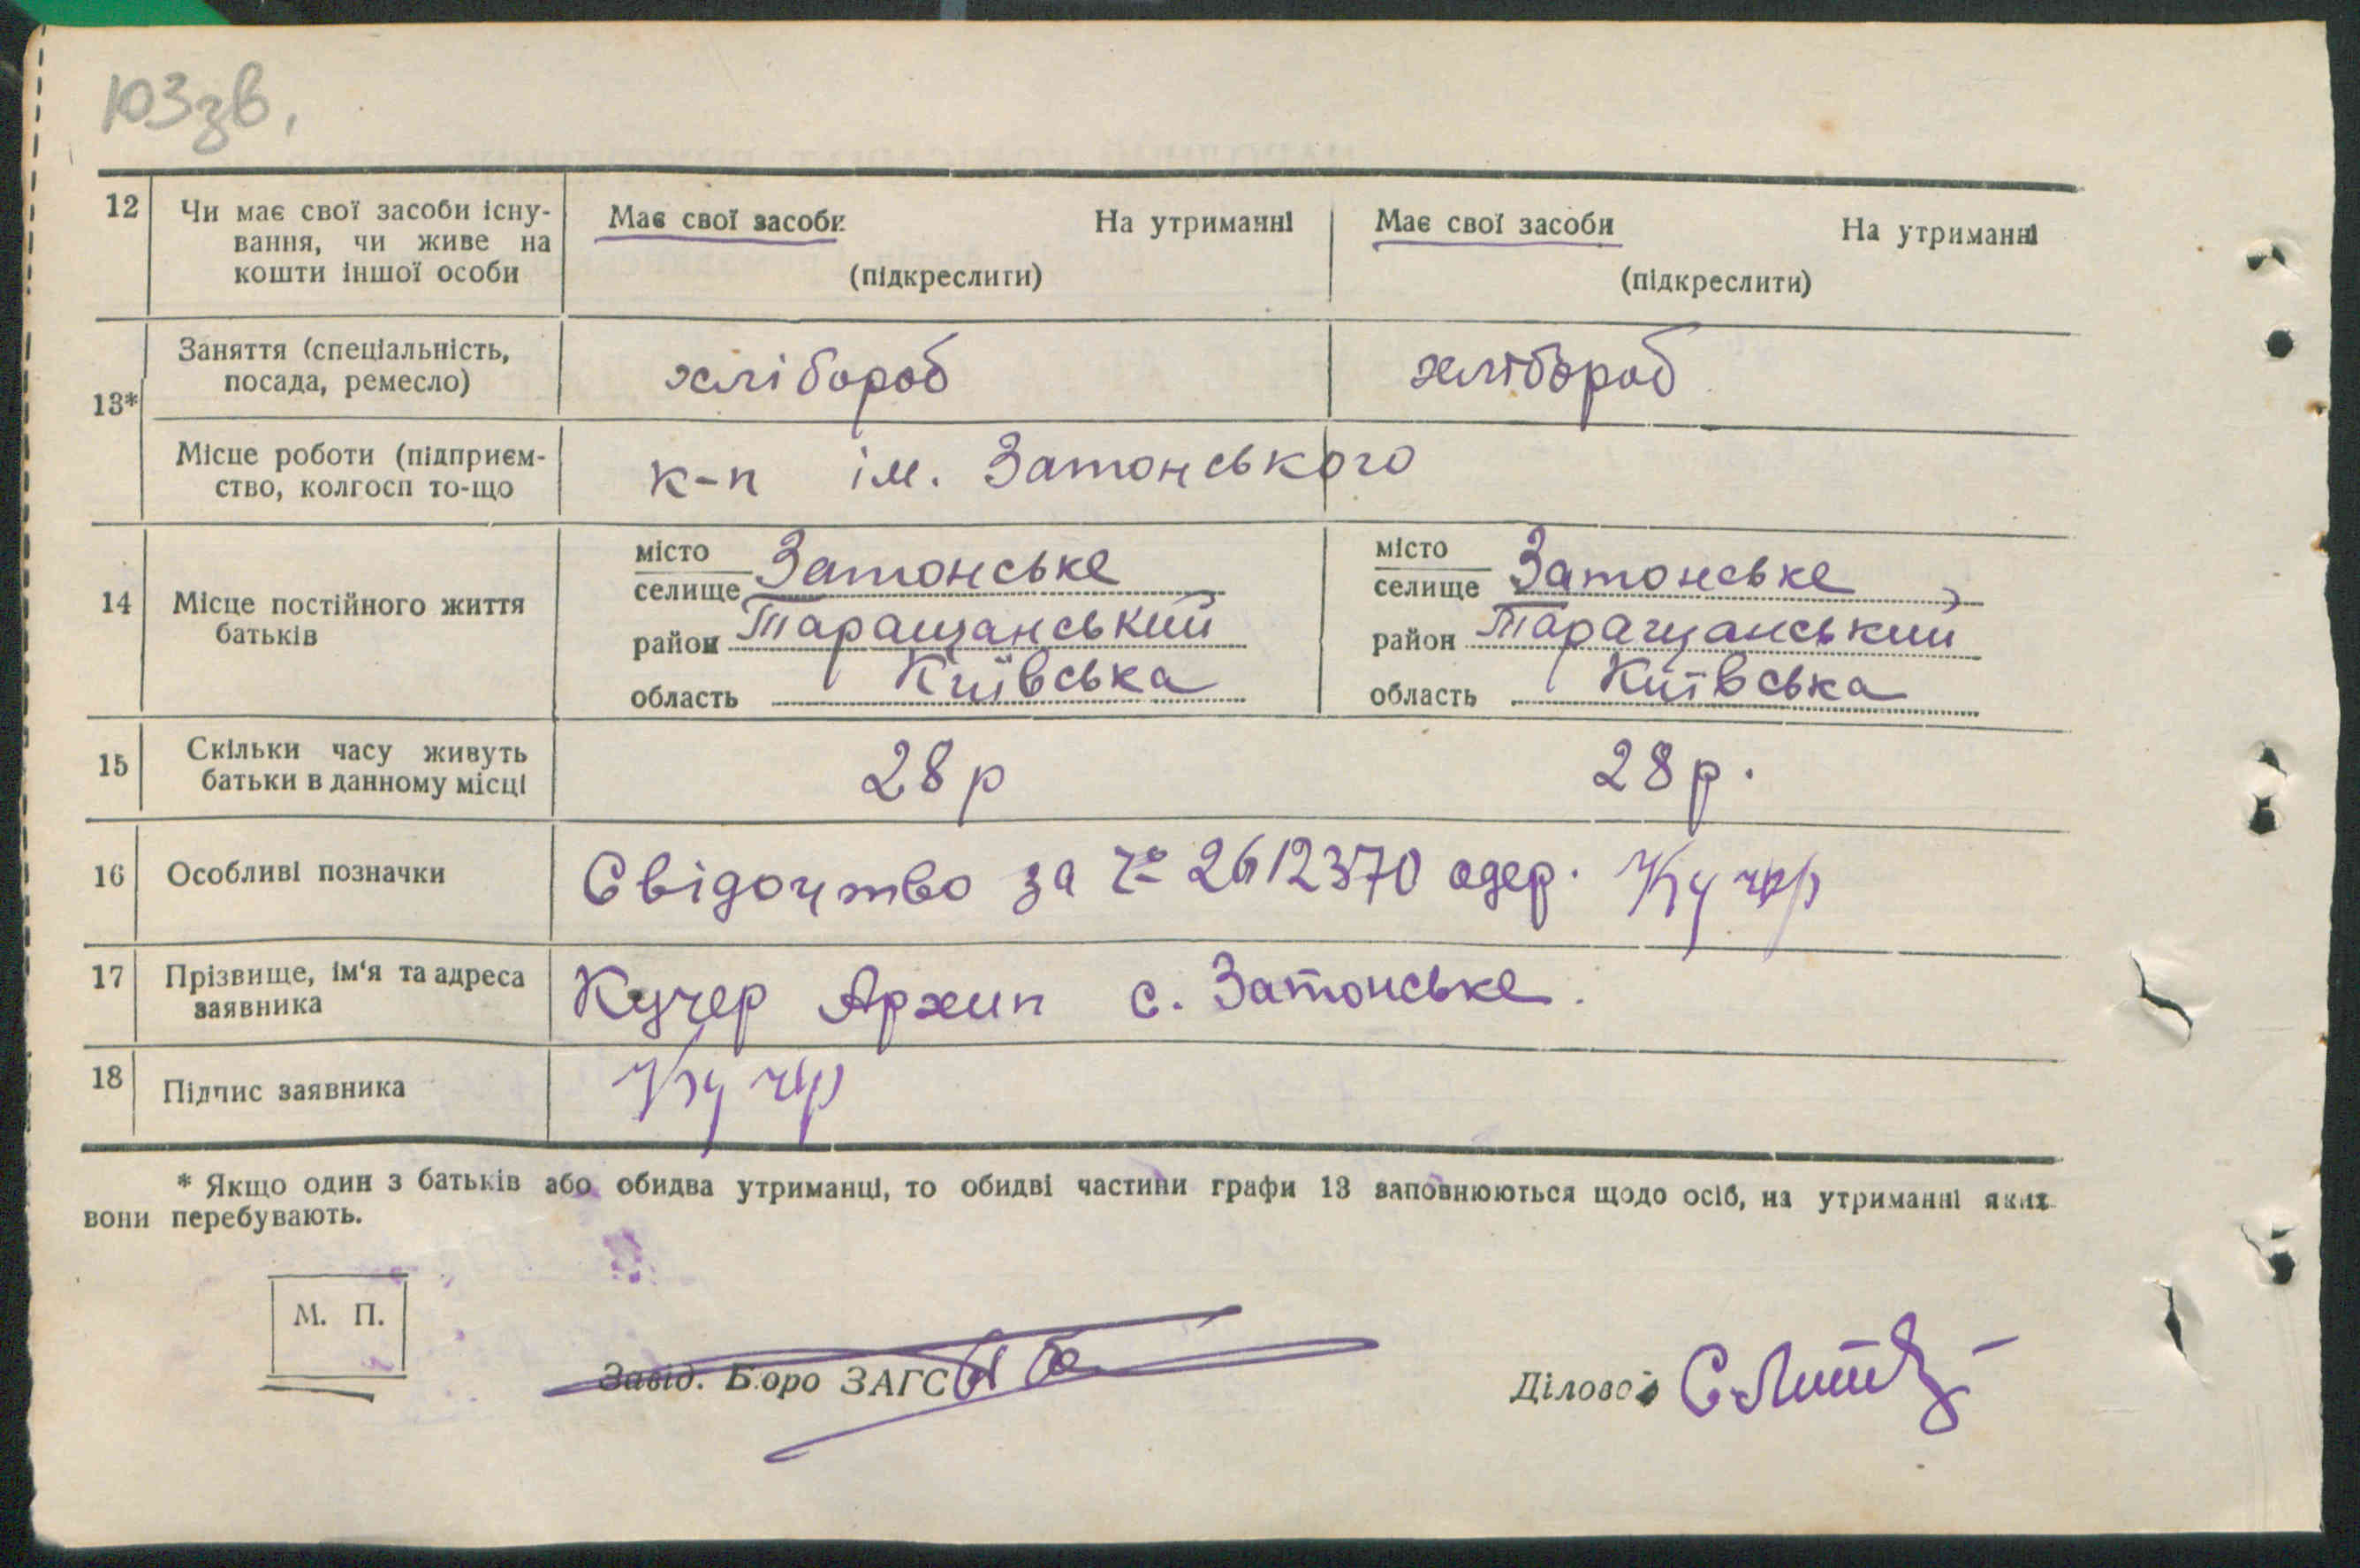 103зв.
12 Чи має свої засоби існу-
вання, чи живе на
кошти іншої особи
Має свої засоби На утриманні
(підкреслити)
Має свої засоби На утриманні
(підкреслити)
13*
Заняття (спеціальність,
посада, ремесло)
хлібороб
хлібороб
Місце роботи (підприєм-
ство, колгосп то-що
к-п ім. Затонського
14 Місце постійного життя
батьків
місто
селище Затонське
район Таращанський
область Київська
місто
селище Затонське
район Таращанський
область Київська
15 Скільки часу живуть
батьки в данному місці
28 р
28 р.
16 Особливі позначки
Свідочтво за № 2612370 одер. Кучер
17 Прізвище, ім'я та адреса
заявника
Кучер Архип с. Затонське.
18 Підпис заявника
Кучер
* Якщо один з батьків або обидва утриманці, то обидві частини графи 13 заповнюються щодо осіб, на утриманні яких
вони перебувають.
М. П.
Завід. Бюро ЗАГС
Діловод